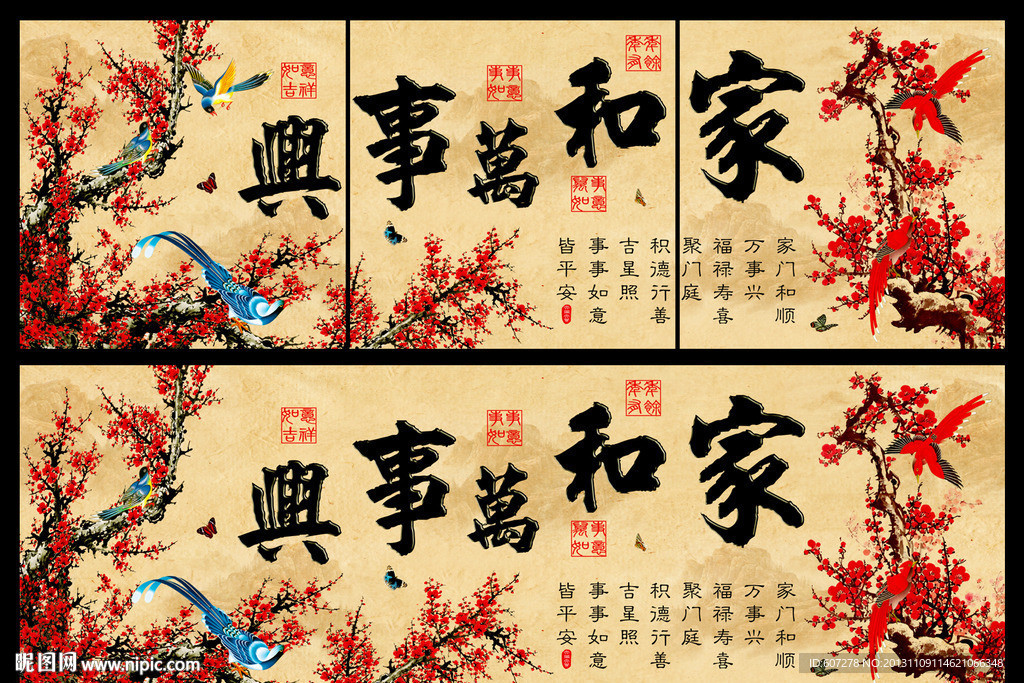 家和萬事興
年年有餘
萬事如意
事事如意
如意吉祥
家门和顺
万事兴
福禄寿喜
聚门庭
积德行善
吉星照
事事如意
皆平安
家和萬事興
年年有餘
萬事如意
事事如意
如意吉祥
家门和顺
万事兴
福禄寿喜
聚门庭
积德行善
吉星照
事事如意
皆平安
昵图网 www.nipic.com
ID:607278 NO:20131109114621066348